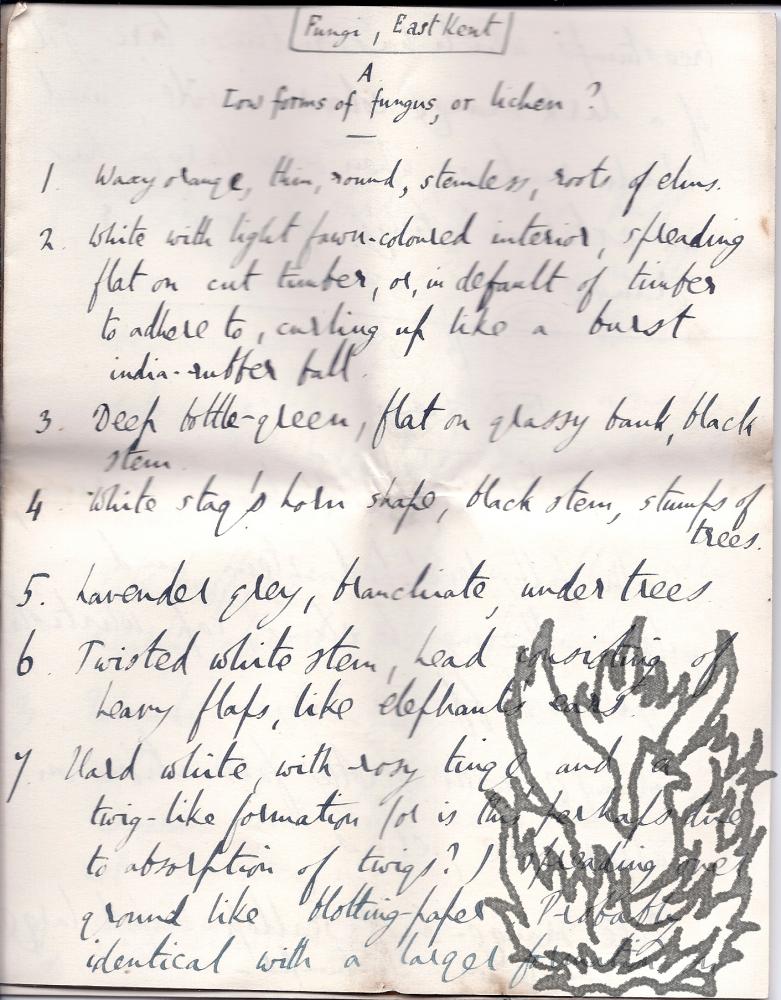 Fungi, East Kent
A
Low forms of fungus, or lichen?
1. Waxy orange, thin, round, stemless, roots of elms.
2. White with light fawn-coloured interior, spreading
flat on cut timber, or, in default of timber
to adhere to, curling up like a burst
india-rubber ball.
3. Deep bottle-green, flat on grassy bank, black
stem.
4 White stag's horn shape, black stem, stumps of
trees.
5. Lavender grey, branchiate, under trees
6. Twisted white stem, head consisting of
heavy flaps, like elephant's ears.
7. Hard white, with rosy tinge and a
twig-like formation (or is this perhaps due
to absorption of twigs?) spreading over
ground like blotting-paper. Probably
identical with a larger formation